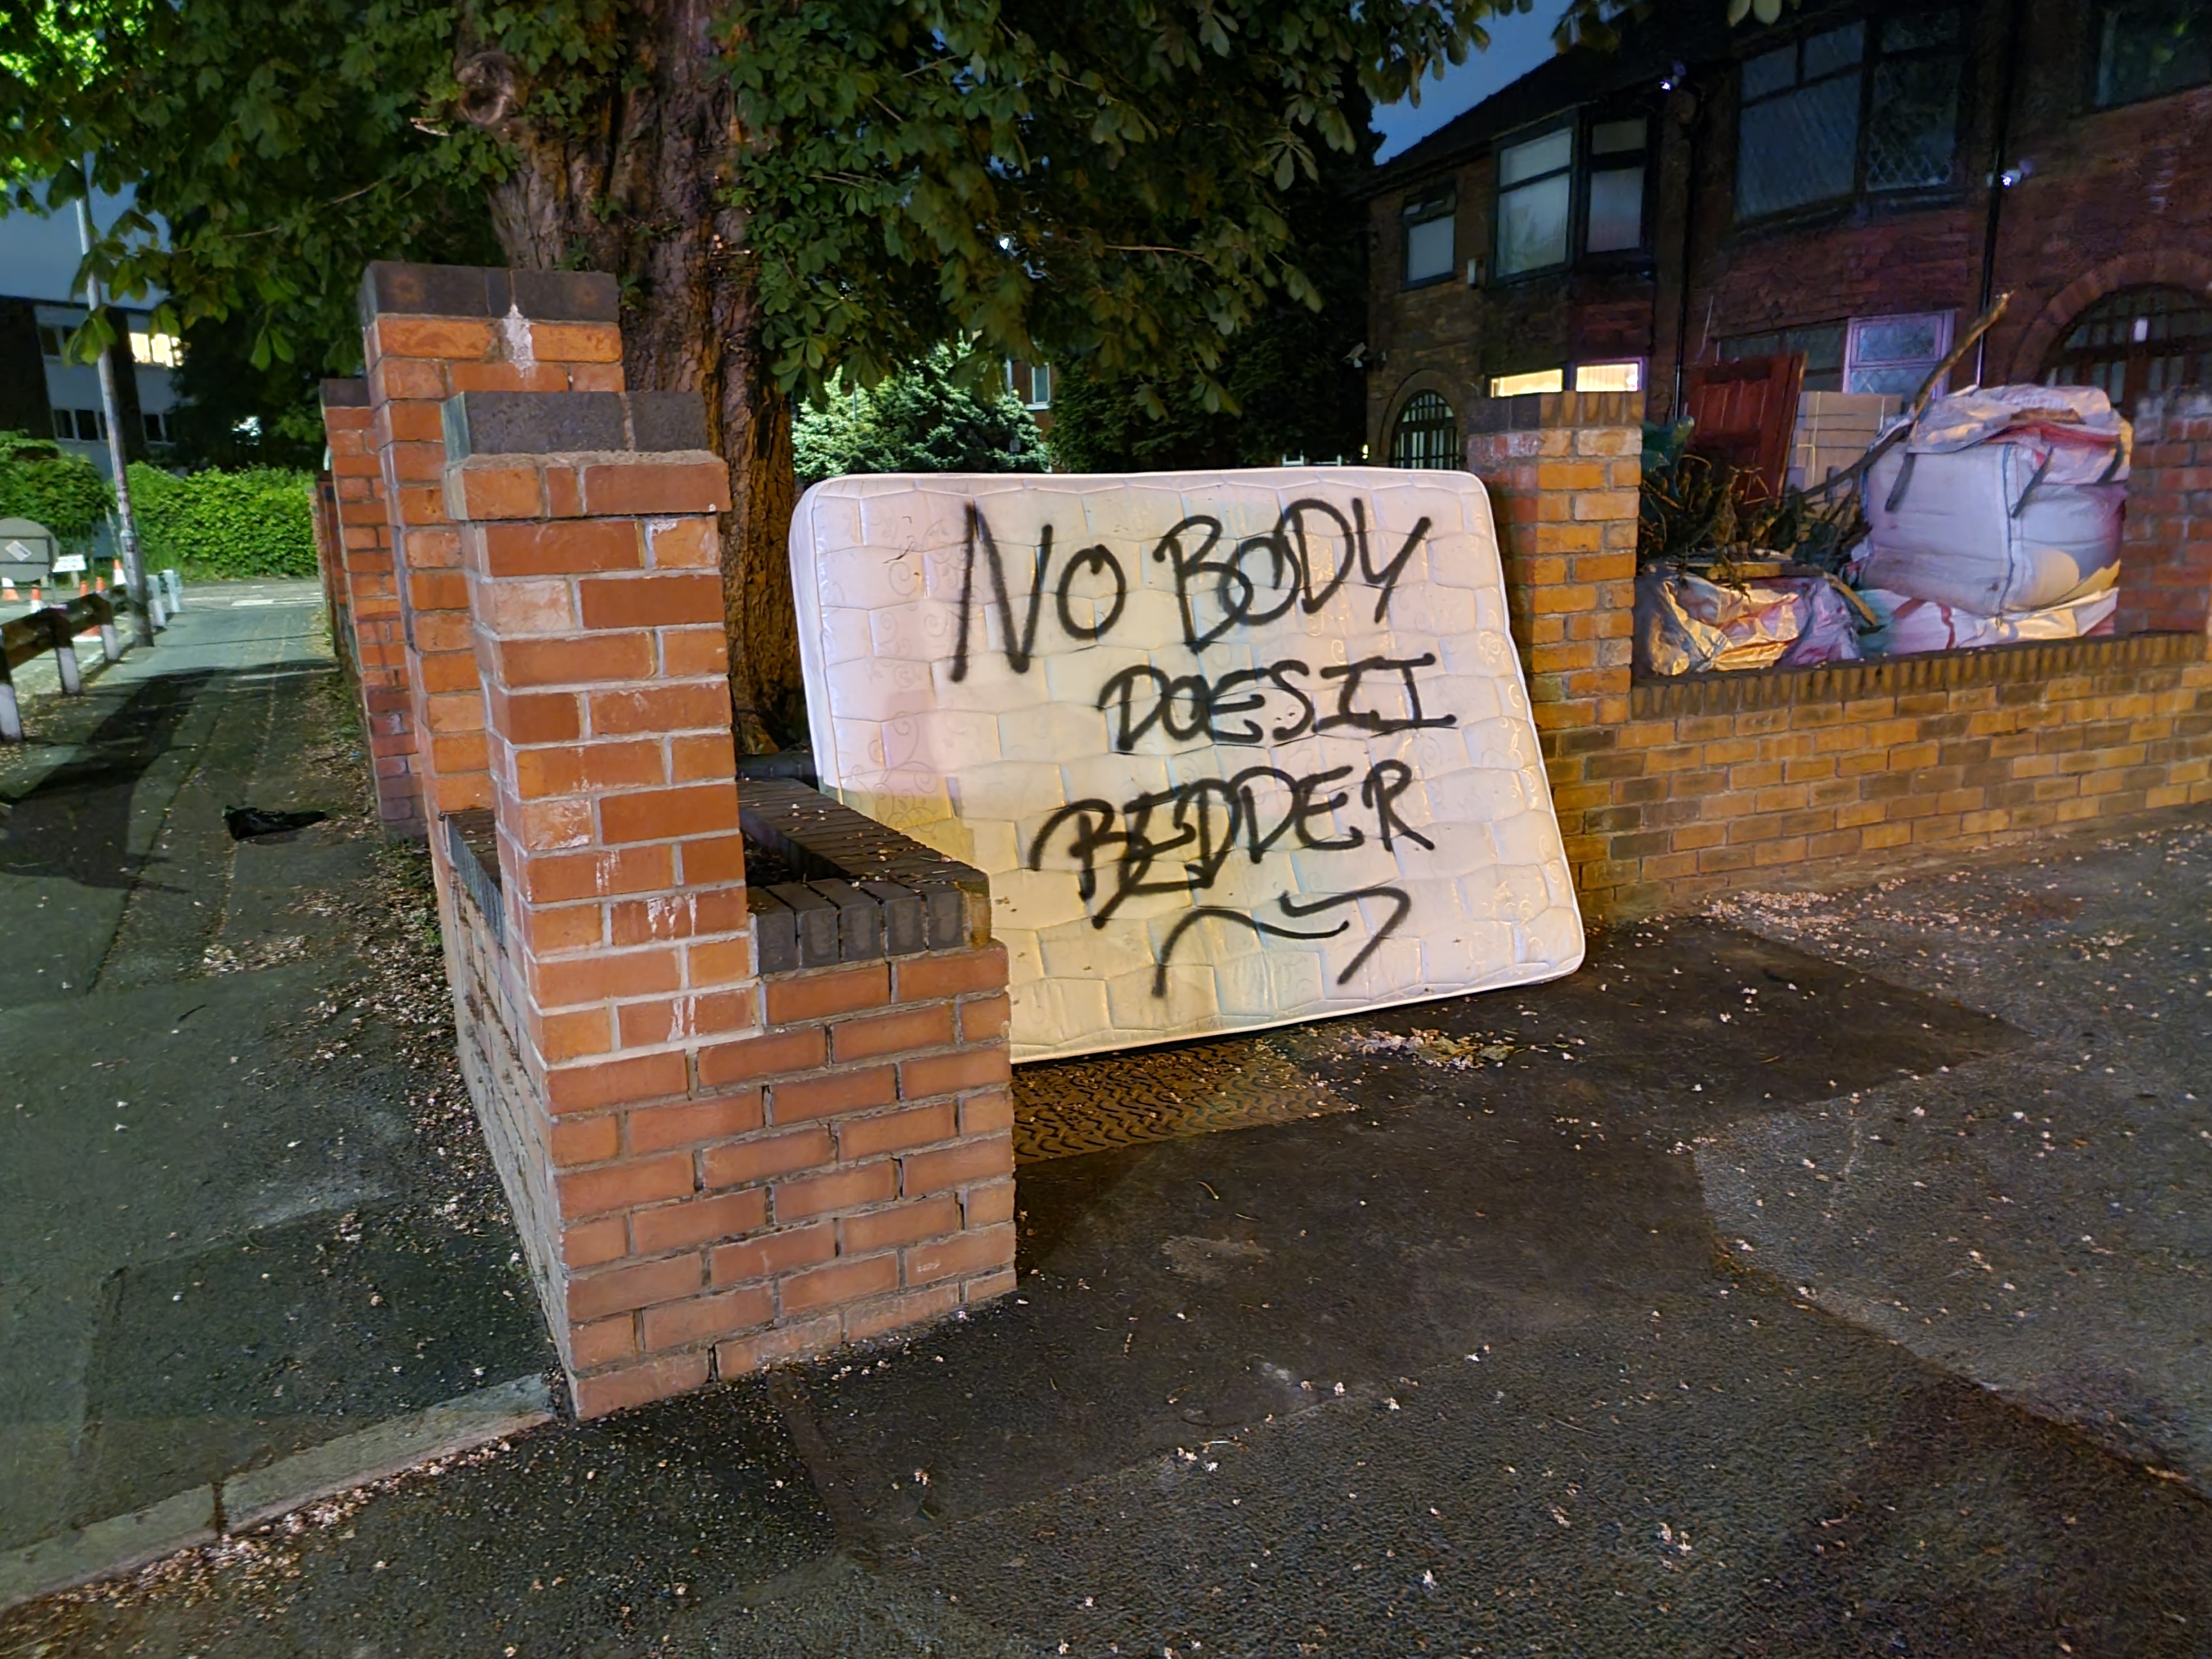 NO BODY
DOES IT
BEDDER